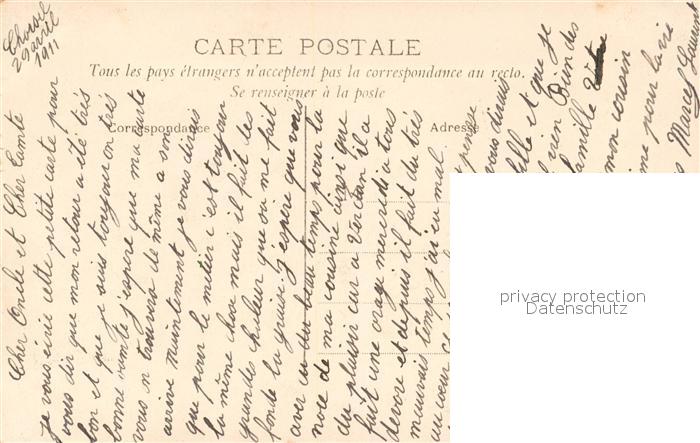 Choisel
29 avril
1911
CARTE POSTALE
Tous les pays étrangers n'acceptent pas la correspondance au recto.
Se renseigner à la poste
Correspondance
Adresse
Cher Oncle et Cher tante
je vous écrie cette petite carte pour
vous dir que mon retour a été très
bon et que je suis toujour en très
bonne santé j'espere que ma carte
vous n trouvera de même a son
arrive maintenant je vous dirais
que pour le métier c'est toujour
la même chose mais il fait des
grandes chaleur que on me fait
fonde la graise j'espere que vous
aver eu du beau temps pour la
noce de ma cousine ainsi que
du plaisir car a Verdun il a
fait une orage mercredi a tous
devore et depuis il fait du très
mauvais temps j'ai eu mal
au cœur
pense
vous dirais
elle et que je
rien Bien des
famille Votre
mon cousin
me pour la vie
Marcel Laurent
privacy protection
Datenschutz